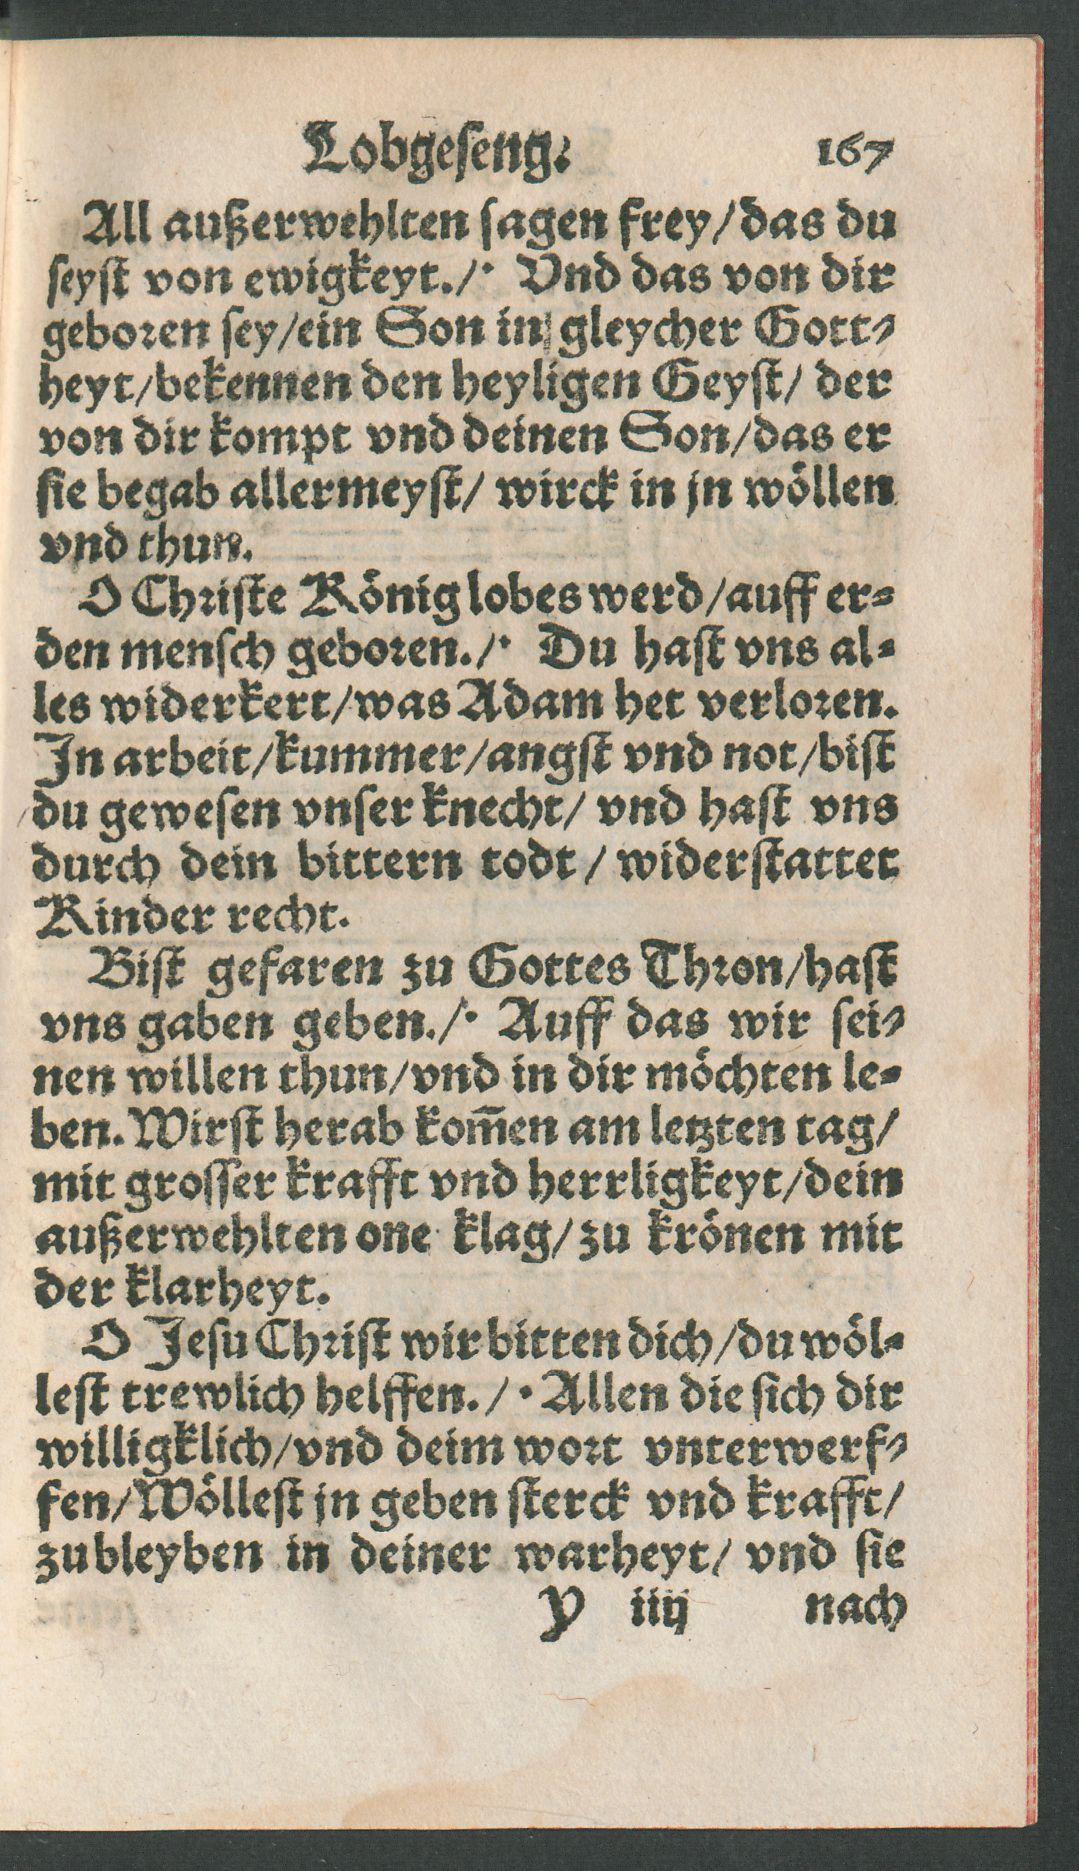 Lobgeseng. 167
All außerwehlten sagen frey/das du
seyst von ewigkeyt./· Vnd das von dir
geboren sey/ein Son in gleycher Gott-
heyt/bekennen den heyligen Geyst/ der
von dir kompt vnd deinen Son/das er
sie begab allermeyst/ wirck in jn wöllen
vnd thun.
O Christe König lobes werd/auff er-
den mensch geboren./· Du hast vns al-
les widerkert/was Adam het verloren.
In arbeit/kummer/angst vnd not/bist
du gewesen vnser knecht/ vnd hast vns
durch dein bittern todt / widerstattet
Kinder recht.
Bist gefaren zu Gottes Thron/hast
vns gaben geben./· Auff das wir sei-
nen willen thun/vnd in dir möchten le-
ben. Wirst herab kom̄en am letzten tag/
mit grosser krafft vnd herrligkeyt/dein
außerwehlten one klag/zu krönen mit
der klarheyt.
O Jesu Christ wir bitten dich/du wöl-
lest trewlich helffen./· Allen die sich dir
willigklich/vnd deim wort vnterwerf-
fen/Wöllest jn geben sterck vnd krafft/
zubleyben in deiner warheyt/ vnd sie
Y iiij nach